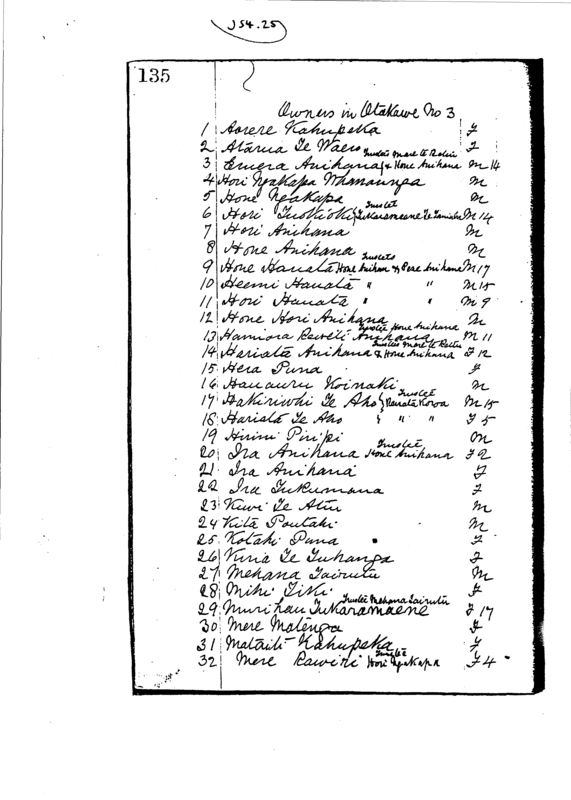 J54.25
135
Owners in Otakawe No 3
1 Aorere Kahupeka F
2 Atarua Te Waero F
3 Emera Anihana Trustees Mare te Rohu & Hone Anihana M 14
4 Hori Ngakapa Whanaunga M
5 Hone Ngakapa M
6 Hori Trustee M 14
7 Hori Anihana M
8 Hone Anihana M
9 Hone Hauata Trustees Hone Anihana & Pere Anihana M 17
10 Heemi Hauata " " M 15
11 Hori Hauata " " M 9
12 Hone Hori Anihana M
13 Hamiora Reweti Anihana Trustee Hone Anihana M 11
14 Hariata Anihana Trustees & Hone Anihana F 12
15 Hera Puna F
16 Hauauru Koinaki M
17 Hakiriwhi Te Aho Trustee Renata Koroa M 15
18 Hariata Te Aho " " F 5
19 Hirini Piripi M
20 Ira Anihana Trustee Hone Anihana F 2
21 Ira Anihana F
22 Ira Tukumana F
23 Kiwi Te Atu M
24 Kita Poutahi M
25 Kotahi Puna F
26 Kiria Te Tuhanga F
27 Mehana Tairutu M
28 Mihi Tiki F
29 Murihau Tukaramaene Trustee Mehana Tairutu F 17
30 Mere Matenga F
31 Mataiti Kahupeka F
32 Mere Rawiri Trustee Hori Ngakapa F 4